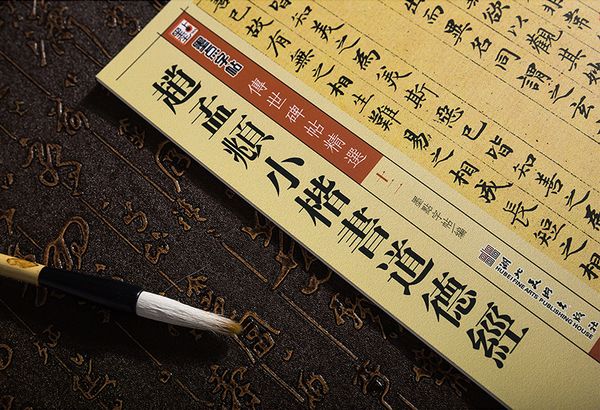 趙孟頫小楷書道德經
傳世碑帖精選 十二
墨点字帖
墨點字帖 編
湖北美術出版社
HUBEI FINE ARTS PUBLISHING HOUSE
非常
欲以觀其
異名同謂之玄
皆知美之為美斯惡已皆知善之為
已故有無之相生難易之相成長短之相